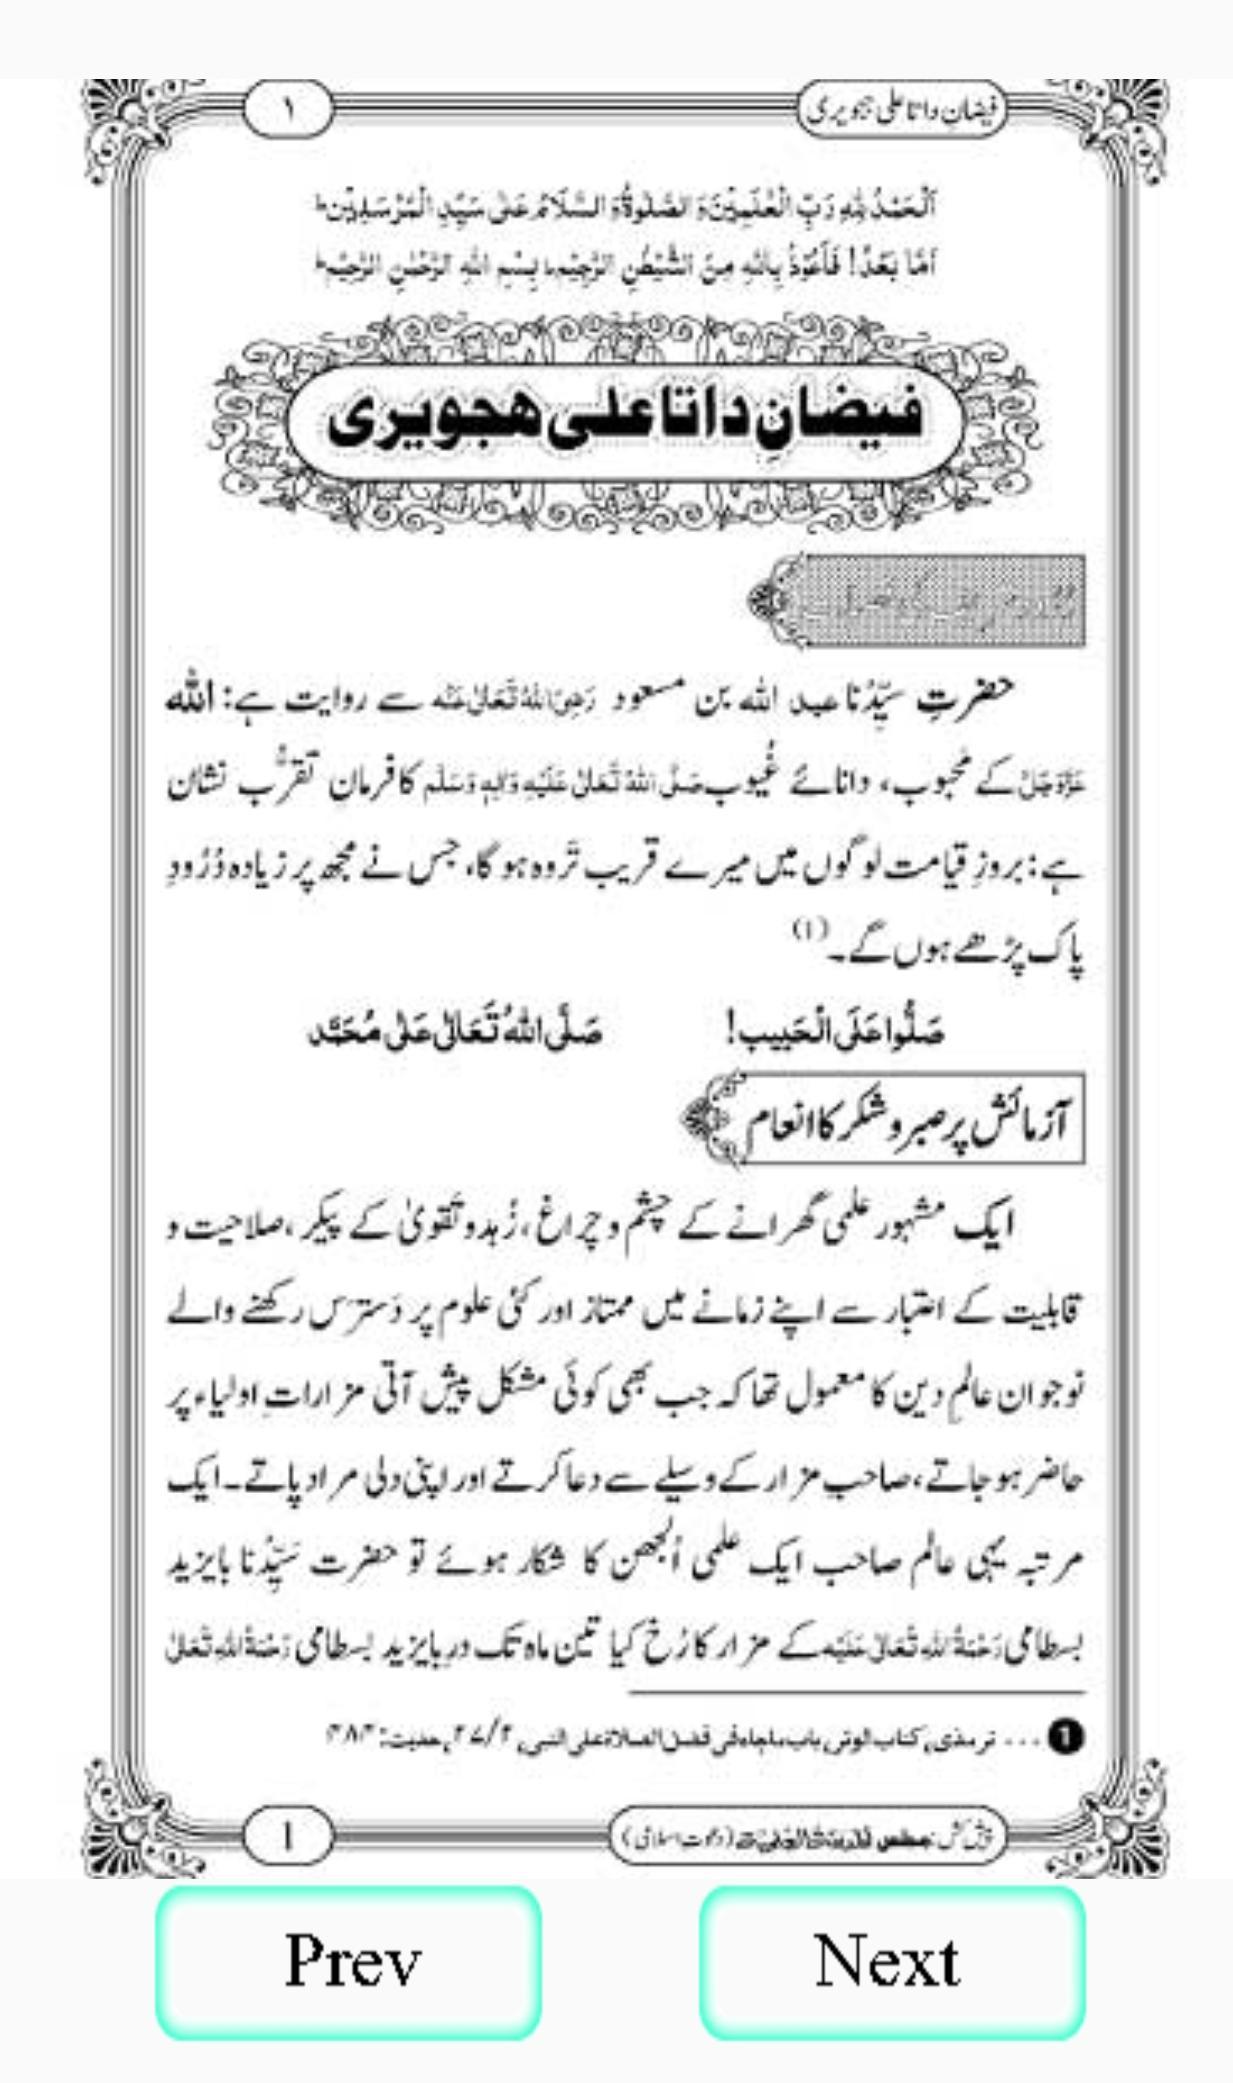 فیضانِ داتا علی ہجویری
۱
اَلْحَمْدُ لِلّٰهِ رَبِّ الْعٰلَمِیْنَ وَ الصَّلٰوةُ وَ السَّلَامُ عَلٰی سَیِّدِ الْمُرْسَلِیْنَ ط
اَمَّا بَعْدُ! فَاَعُوْذُ بِاللّٰهِ مِنَ الشَّیْطٰنِ الرَّجِیْمِ ط بِسْمِ اللّٰهِ الرَّحْمٰنِ الرَّحِیْمِ ط
فیضانِ داتا علی هجویری
حضرتِ سَیِّدُنا عبد اللہ بن مسعود رَضِیَ اللهُ تَعَالٰی عَنْه سے روایت ہے: اللّٰه
عَزَّوَجَلَّ کے مَحبوب، دانائے غُیوب صَلَّی اللهُ تَعَالٰی عَلَیْهِ وَاٰلِهٖ وَسَلَّم کا فرمانِ تقرُّب نشان
ہے: بروزِ قیامت لوگوں میں میرے قریب تَر وہ ہو گا، جس نے مجھ پر زیادہ دُرُودِ
پاک پڑھے ہوں گے۔(۱)
صَلُّوا عَلَی الْحَبِیب! صَلَّی اللهُ تَعَالٰی عَلٰی مُحَمَّد
آزمائش پر صبر و شکر کا انعام
ایک مشہور علمی گھرانے کے چشم و چراغ، زُہد و تَقویٰ کے پیکر، صلاحیت و
قابلیت کے اعتبار سے اپنے زمانے میں ممتاز اور کئی علوم پر دَسترَس رکھنے والے
نوجوان عالمِ دین کا معمول تھا کہ جب بھی کوئی مشکل پیش آتی مزاراتِ اولیاء پر
حاضر ہو جاتے، صاحبِ مزار کے وسیلے سے دعا کرتے اور اپنی دلی مراد پاتے۔ ایک
مرتبہ یہی عالم صاحب ایک علمی اُلجھن کا شکار ہوئے تو حضرت سَیِّدُنا بایزید
بسطامی رَحْمَةُ اللهِ تَعَالٰی عَلَیْه کے مزار کا رُخ کیا تین ماہ تک دربایزید بسطامی رَحْمَةُ اللهِ تَعَالٰی
1 ... ترمذی، کتاب الوتر، باب ماجاء فی فضل الصلاة علی النبی، ۲/۲۷، حدیث: ۴۸۴
پیش کش: مجلس اَلْمَدِیْنَةُ الْعِلْمِیَّة (دعوت اسلامی)
1
Prev
Next